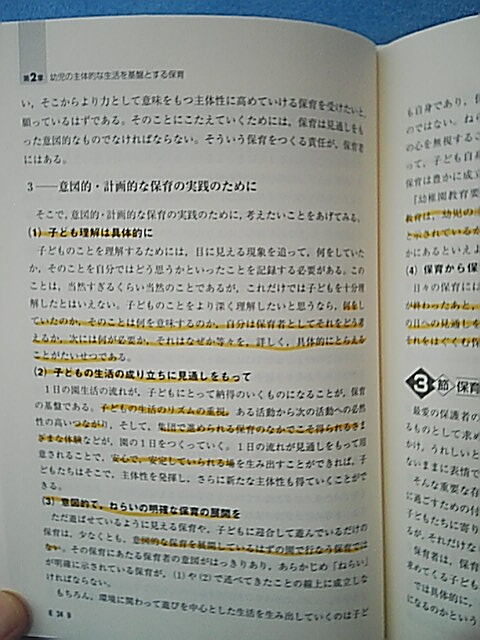 第2章 幼児の主体的な生活を基盤とする保育
い，そこからより力として意味をもつ主体性に高めていける保育を受けたいと
願っているはずである。そのことにこたえていくためには，保育は見通しをも
った意図的なものでなければならない。そういう保育をつくる責任が，保育者
にはある。
3——意図的・計画的な保育の実践のために
そこで，意図的・計画的な保育の実践のために，考えたいことをあげてみる。
(1) 子ども理解は具体的に
子どものことを理解するためには，目に見える現象を追って，何をしていた
か，そのことを自分ではどう思うかといったことを記録する必要がある。この
ことは，当然すぎるくらい当然のことであるが，これだけでは子どもを十分理
解したとはいえない。子どものことをより深く理解したいと思うなら，何をし
ていたのか，そのことは何を意味するのか，自分は保育者としてそれをどう考
えるか，次には何が必要か，それはなぜか等々を，詳しく，具体的にとらえる
ことがたいせつである。
(2) 子どもの生活の成り立ちに見通しをもって
1日の園生活の流れが，子どもにとって納得のいくものになることが，保育
の基盤である。子どもの生活のリズムの重視，ある活動から次の活動への必然
性の高いつながり，そして，集団で進められる保育のなかでこそ得られるさま
ざまな体験などが，園の1日をつくっていく。1日の流れが見通しをもって用
意されることで，安心で，安定していられる場を生み出すことができれば，子
どもたちはそこで，主体性を発揮し，さらに新たな主体性も得ていくことがで
きる。
(3) 意図的で，ねらいの明確な保育の展開を
ただ遊ばせているように見える保育や，子どもに迎合して遊んでいるだけの
保育は，少なくとも，意図的な保育を展開しているはずの園で行なう保育では
ない。その保育にあたる保育者の意図がはっきりあり，あらかじめ「ねらい」
が明確に示されている保育が，(1)や(2)で述べてきたことの線上に成立しな
ければならない。
もちろん，環境に関わって遊びを中心とした生活を生み出していくのは子ど
34
も自身であり，
のではない。ねら
の心を無視するこ
って，子ども自
保育は豊かに成
「幼稚園教育要
教育は，幼児の
と示されているが
かにあるといえよ
(4) 保育から保
日々の保育には
が終わったあと，
の日への見通しを
それをはぐくむ保
3節 保育
最愛の保護者の
るものとして求め
かけ，うれしいと
ないままに表情で
そんな重要な存
に過ごすための付
子どもたちに寄り
るが，それだけな
保育者は，保育
求めてくる子ども
では具体的に，
になるのかという